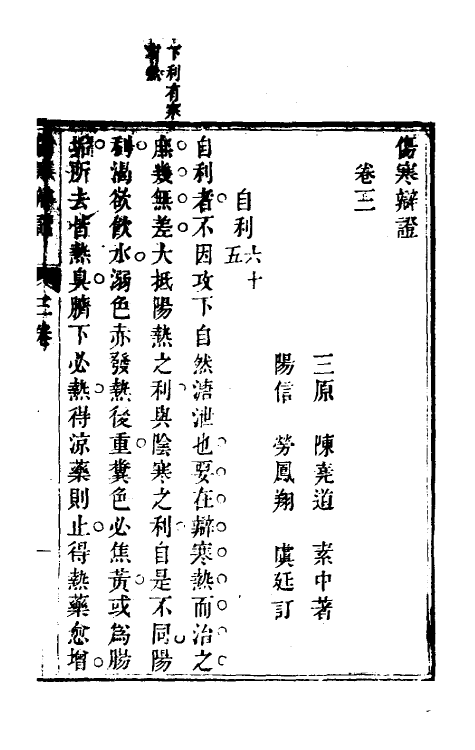 下利有寒
有熱
傷寒辯證
卷三
三原 陳堯道 素中著
陽信 勞鳳翔 虞延訂
自利六十五
自利者不因攻下自然溏泄也要在辯寒熱而治之
庶幾無差大抵陽熱之利與陰寒之利自是不同陽
利渴欲飲水溺色赤發熱後重糞色必焦黃或爲腸
垢所去皆熱臭臍下必熱得涼藥則止得熱藥愈增
三卷
一